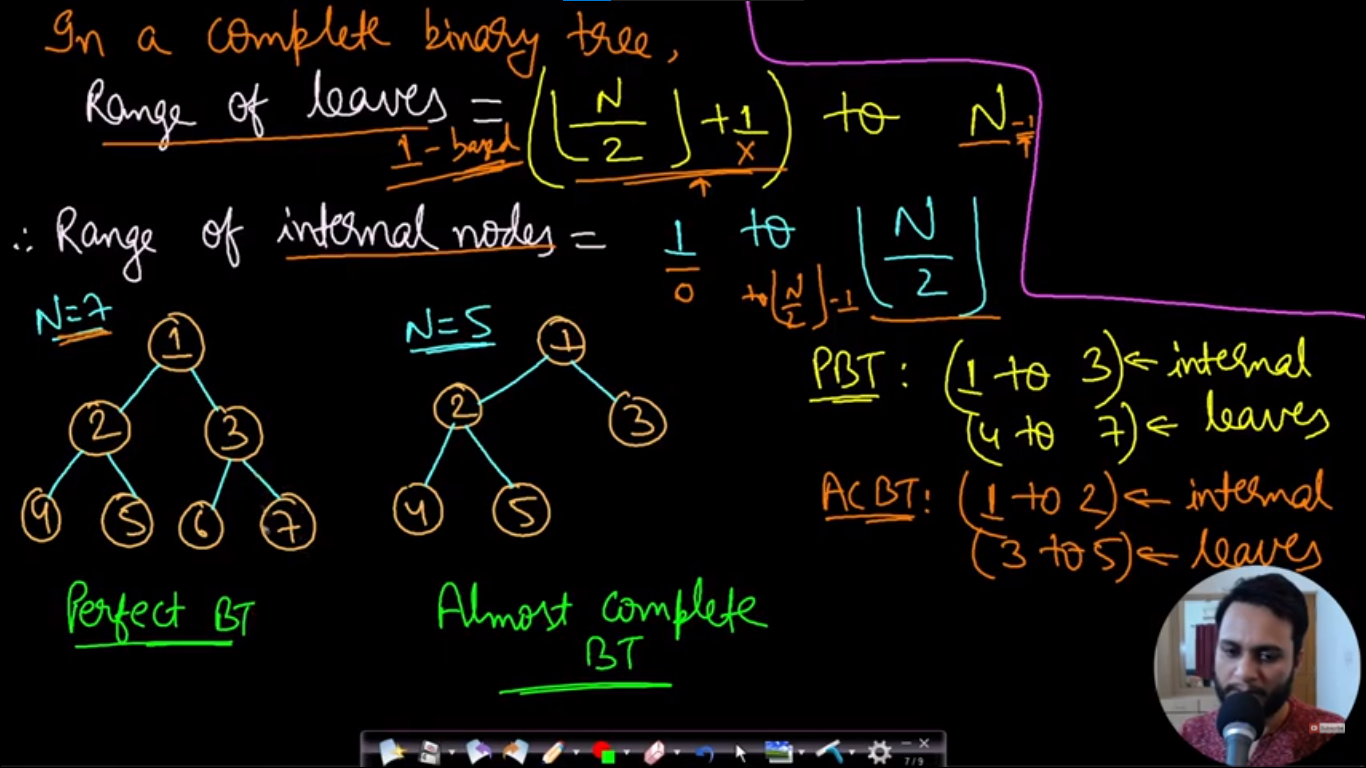 In a complete binary tree,
Range of leaves = (⌊N/2⌋ + 1) to N -1
1-based x
∴ Range of internal nodes = 1 to ⌊N/2⌋
0 to ⌊N/2⌋-1
N=7
1
2 3
4 5 6 7
Perfect BT
N=5
1
2 3
4 5
Almost complete
BT
PBT: (1 to 3) ← internal
(4 to 7) ← leaves
ACBT: (1 to 2) ← internal
(3 to 5) ← leaves
Subscribe
7/9